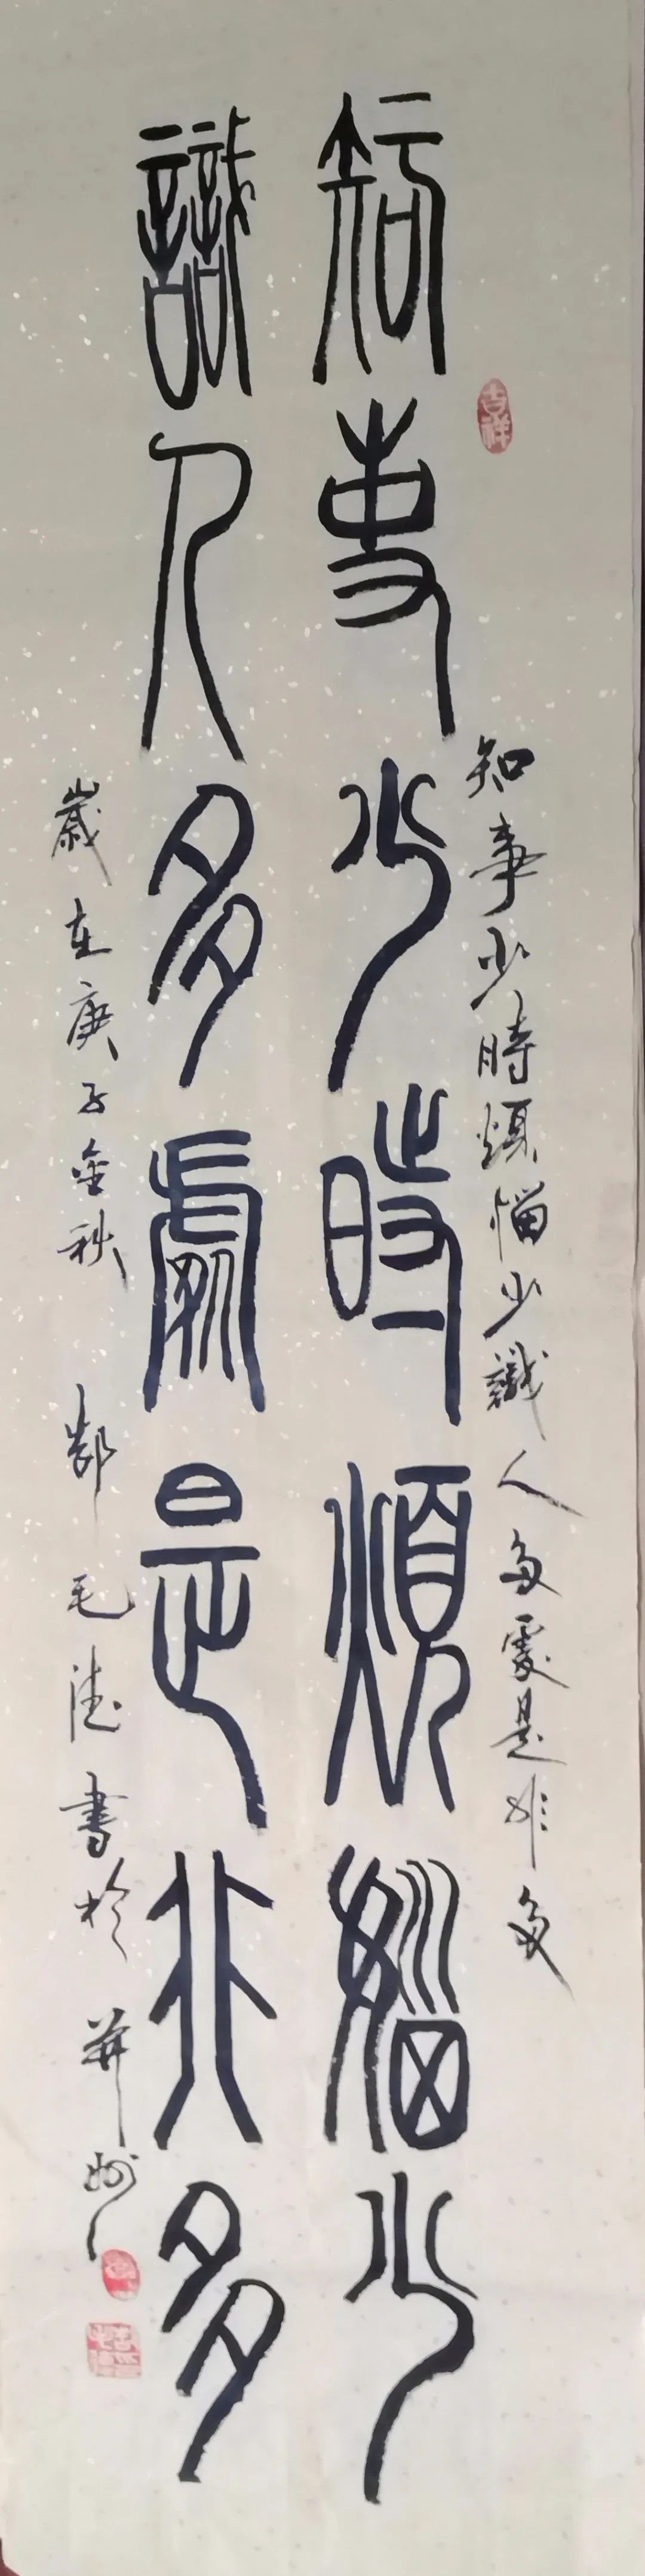 知事少時煩惱少識人多處是非多
知事少時煩惱少
識人多處是非多
歲在庚子金秋 郝毛德書於并州
吉祥